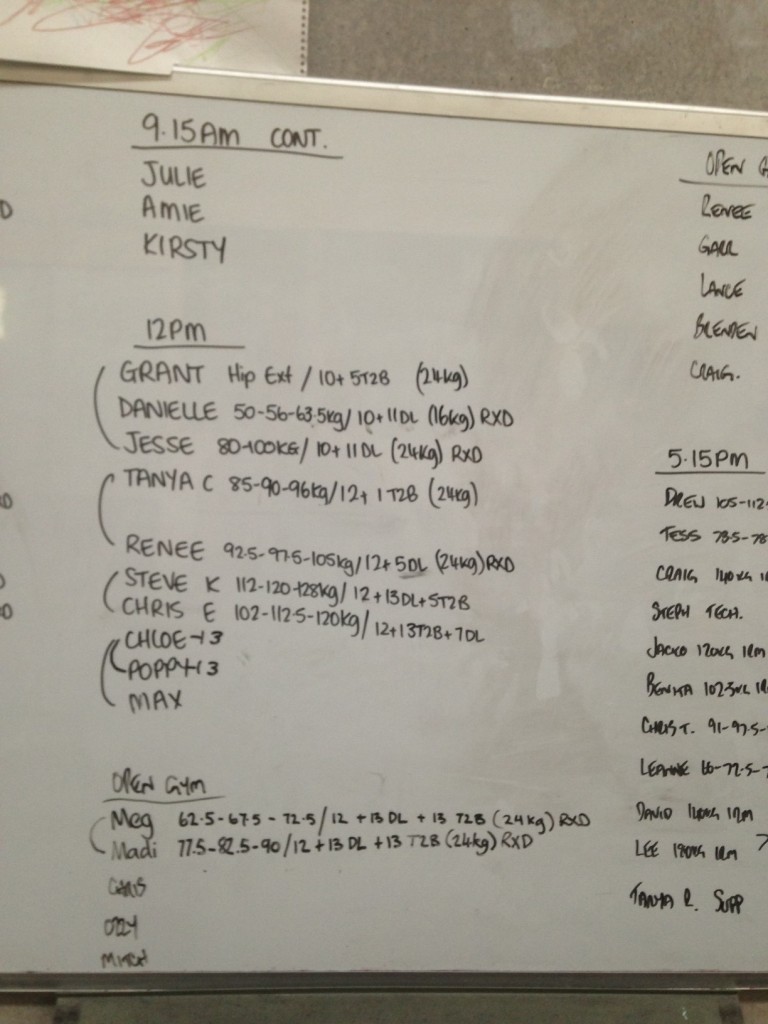 9.15AM CONT.
JULIE
AMIE
KIRSTY
12PM
GRANT Hip Ext / 10+ 5T2B (24kg)
DANIELLE 50-56-63.5kg/ 10+11DL (16kg) RXD
JESSE 80-100KG/ 10+11DL (24kg) RXD
TANYA C 85-90-96kg/12+ 1 T2B (24kg)
RENEE 92.5-97.5-105kg/12+5DL (24kg)RXD
STEVE K 112-120-128kg/ 12+13DL+5T2B
CHRIS E 102-112.5-120kg/ 12+13T2B+7DL
CHLOE-13
POPPY-13
MAX
OPEN GYM
Meg 62.5-67.5-72.5/12 +13 DL + 13 T2B (24kg) RXD
Madi 77.5-82.5-90/12+13DL +13 T2B (24kg) RXD
CHRIS
OZZY
MITCH
OPEN G
RENEE
GARR
LANCE
BRENDEN
CRAIG.
5.15PM
DREW 105-112
TESS 73.5-78
CRAIG 140KG 1
STEPH TECH.
JACKO 120KG 1RM
102.5KG 1R
CHRIS T. 91-97.5-
LEANNE 66-72.5-7
DAVID 140KG 1RM
LEE 180KG 1RM
TANYA R. SUPP